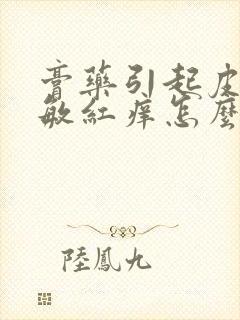 膏藥引起皮
敏紅痒怎麼
陸鳳九